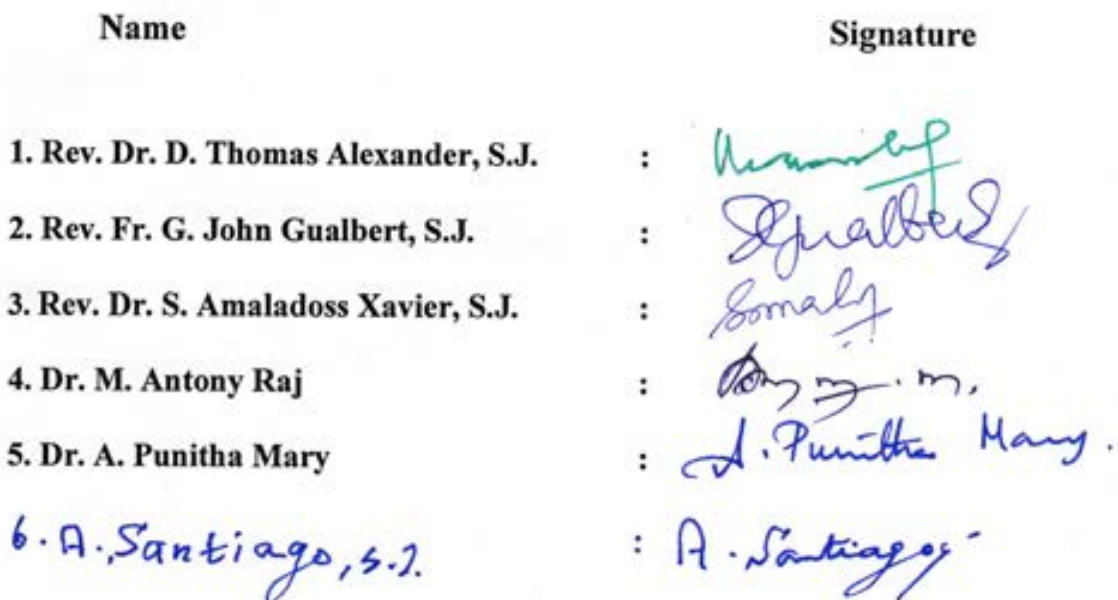 Name Signature
1. Rev. Dr. D. Thomas Alexander, S.J. :
2. Rev. Fr. G. John Gualbert, S.J. : Gualbert
3. Rev. Dr. S. Amaladoss Xavier, S.J. :
4. Dr. M. Antony Raj :
5. Dr. A. Punitha Mary : A. Punitha Mary.
6. A. Santiago, S.J. : A. Santiago